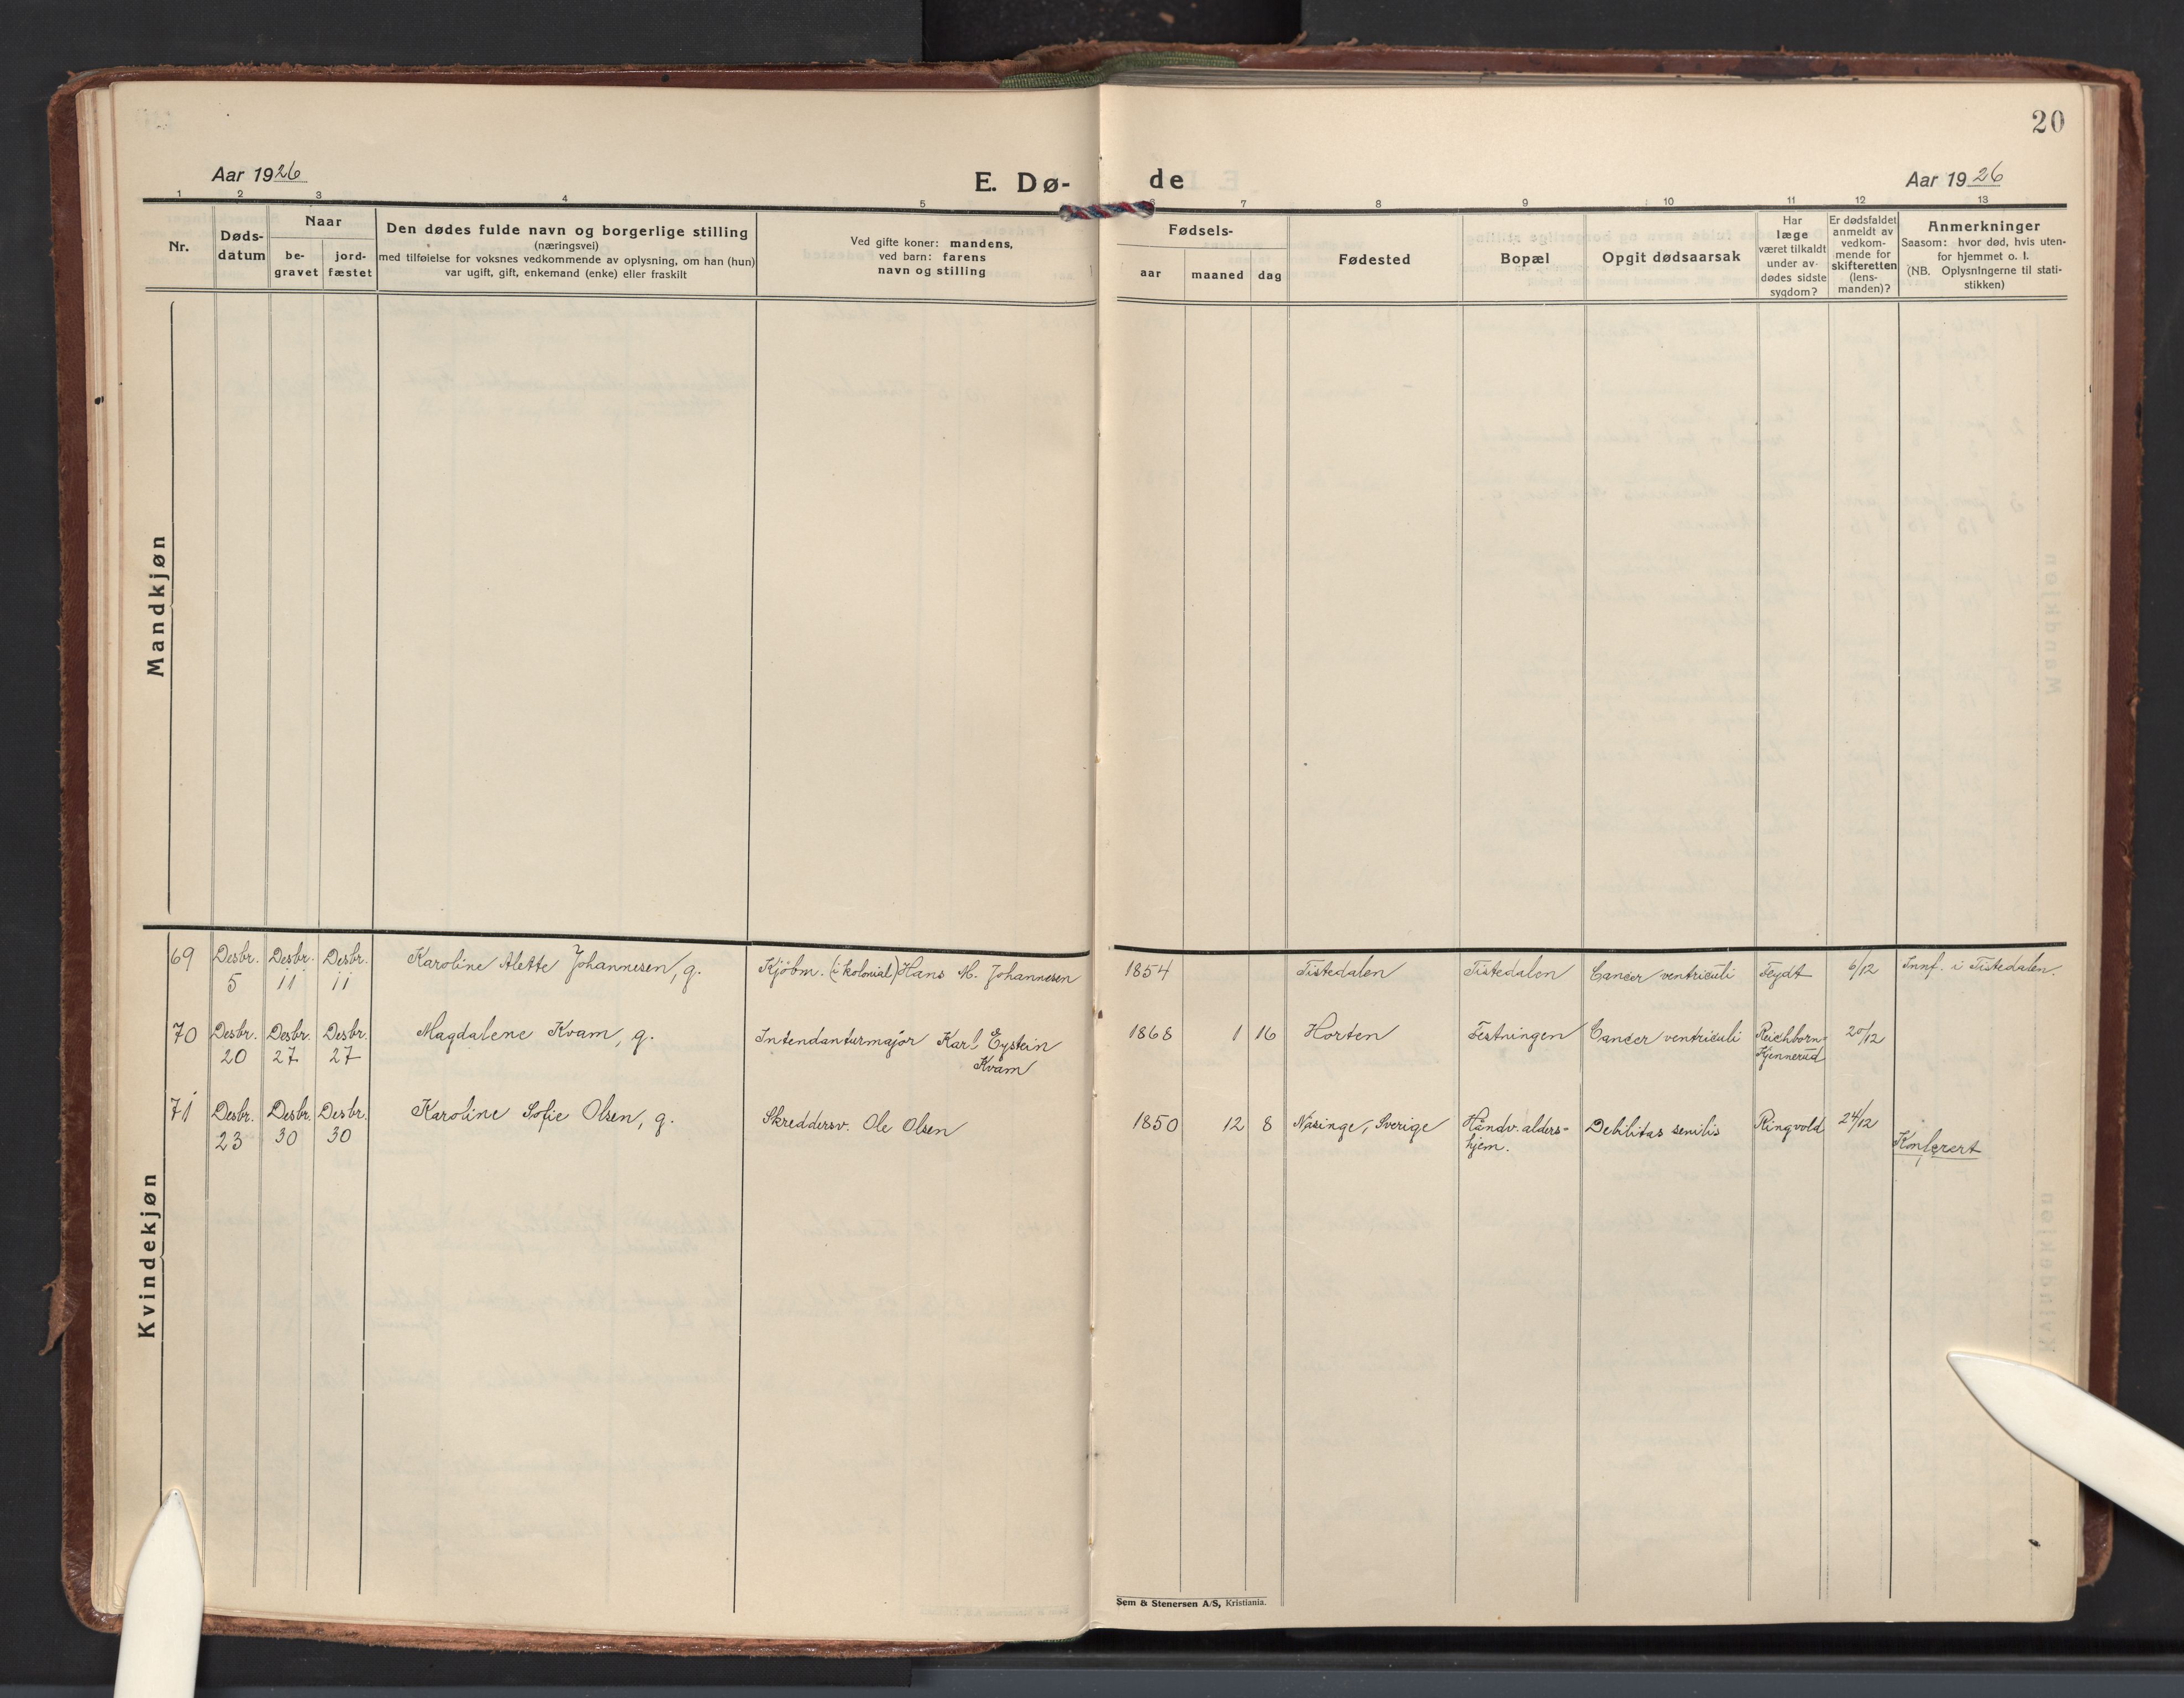 20
Aar 1926
E. Dø-
de
Aar 1926
1 2 3 4 5 6 7 8 9 10 11 12 13
Nr.
Døds-
datum
Naar
be-
gravet
jord-
fæstet
Den dødes fulde navn og borgerlige stilling
(næringsvei)
med tilføielse for voksnes vedkommende av oplysning, om han (hun)
var ugift, gift, enkemand (enke) eller fraskilt
Ved gifte koner: mandens,
ved barn: farens
navn og stilling
Fødsels-
aar
maaned
dag
Fødested
Bopæl
Opgit dødsaarsak
Har
læge
været tilkaldt
under av-
dødes sidste
sygdom?
Er dødsfaldet
anmeldt av
vedkom-
mende for
skifteretten
(lens-
manden)?
Anmerkninger
Saasom: hvor død, hvis uten-
for hjemmet o. l.
(NB. Oplysningerne til stati-
stikken)
Mandkjøn
Kvindekjøn
69 Desbr. Desbr. Desbr. Karoline Alette Johannesen, g. Kjöbm. (i kolonial) Hans M. Johannesen 1854 Tistedalen Tistedalen Cancer ventriculi Feydt 6/12 Innf. i Tistedalen.
5 11 11
70 Desbr. Desbr. Desbr. Magdalene Kvam, g. Intendanturmajor Karl Eystein 1868 1 16 Horten Festningen Cancer ventriculi Reichborn- 20/12
20 27 27 Kvam Kjennerud
71 Desbr. Desbr. Desbr. Karoline Sofie Olsen, g. Skreddersv. Ole Olsen 1850 12 8 Näsinge, Sverige Håndv. alders- Debilitas senilis Ringvold 24/12
23 30 30 hjem.
Konferert
Sem & Stenersen A/S, Kristiania.